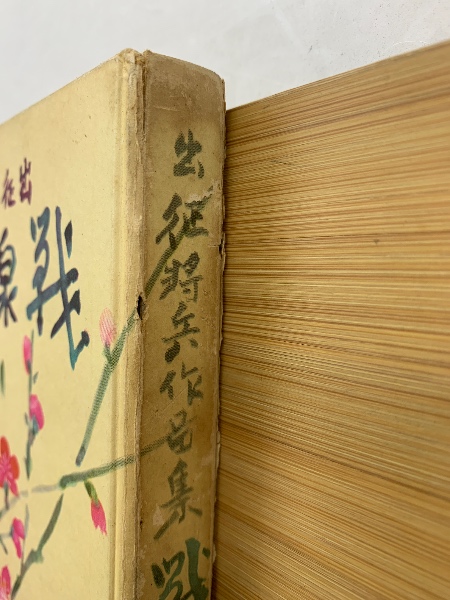 出征将兵作品集 戦
出征
戦線